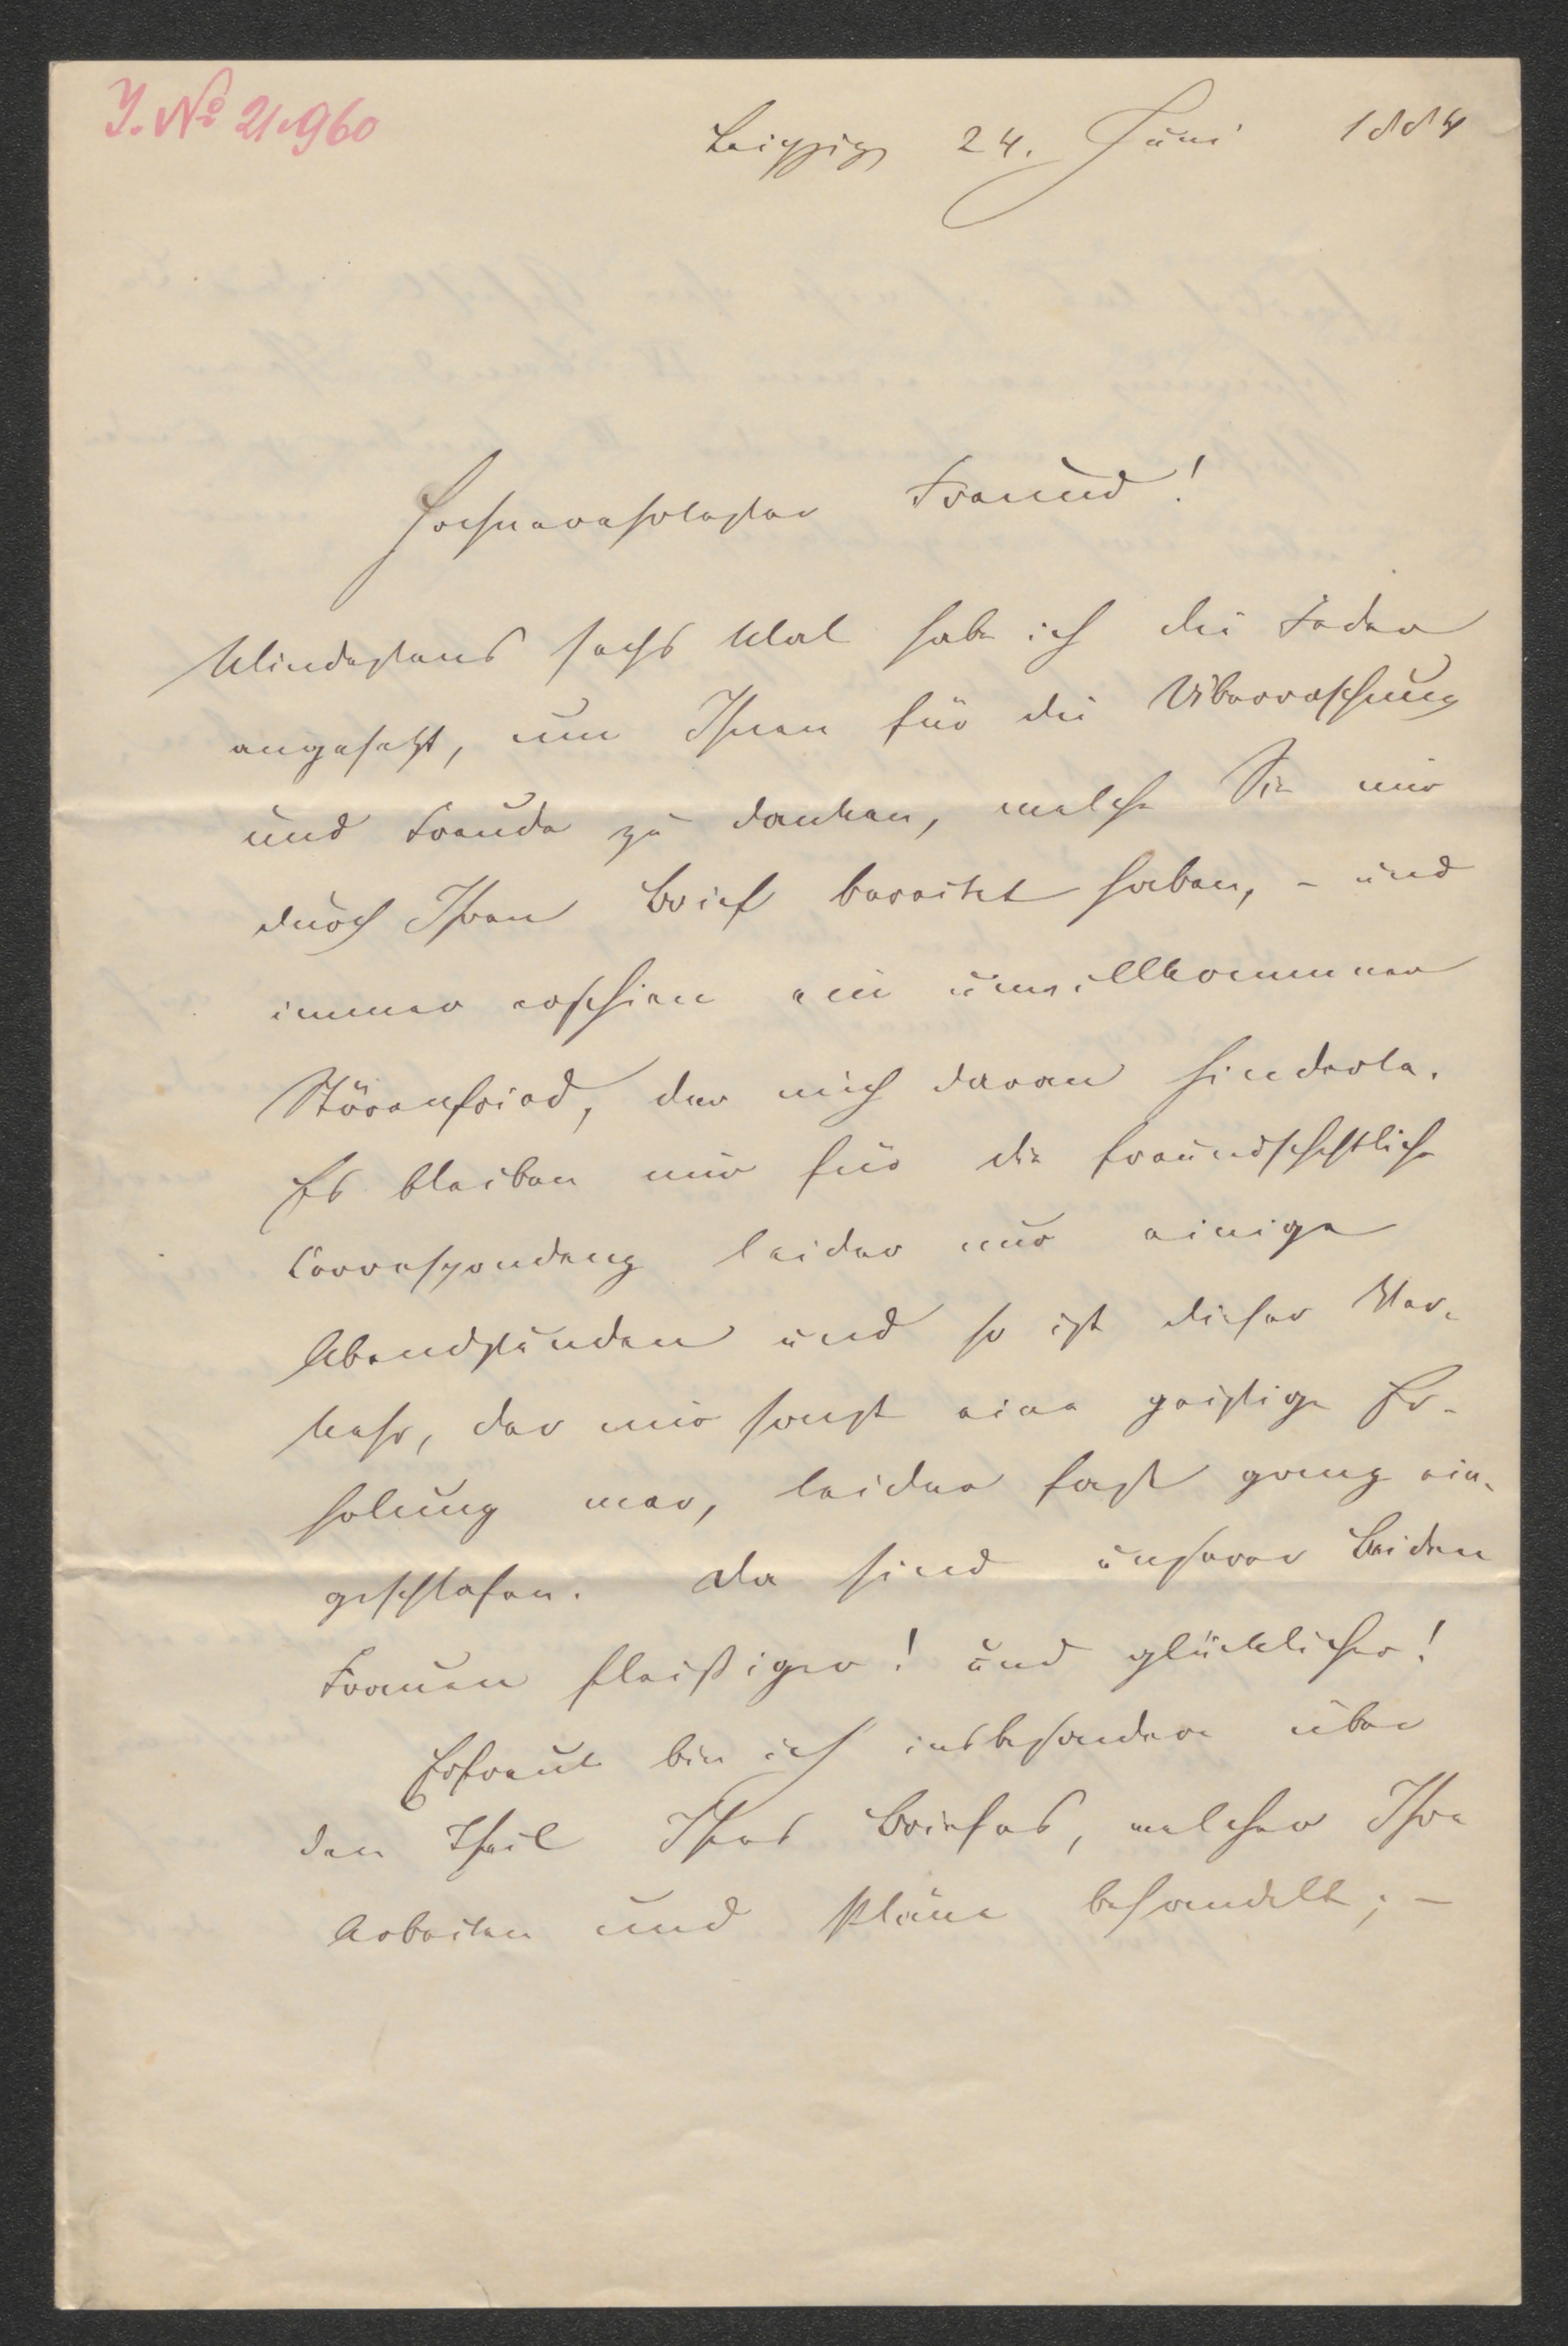 J. No 21.960
Leipzig 24. Juni 1884
Hochverehrtester Freund!
Mindestens sechs Mal habe ich die Feder
angesetzt, um Ihnen für die Überraschung
und Freude zu danken, welche Sie mir
durch Ihren Brief bereitet haben, – und
immer erschien ein unwillkommner
Störenfried, der mich daran hinderte.
Es bleiben mir für die freundschaftliche
Correspondenz leider nur einige
Abendstunden und so ist dieser Ver-
kehr, der mir sonst eine geistige Er-
holung war, leider fast ganz ein-
geschlafen. Da sind unserer Beiden
Frauen fleißiger! und glücklicher!
Erfreut bin ich insbesondere über
den Theil Ihres Briefes, welcher Ihre
Arbeiten und Pläne behandelt; –